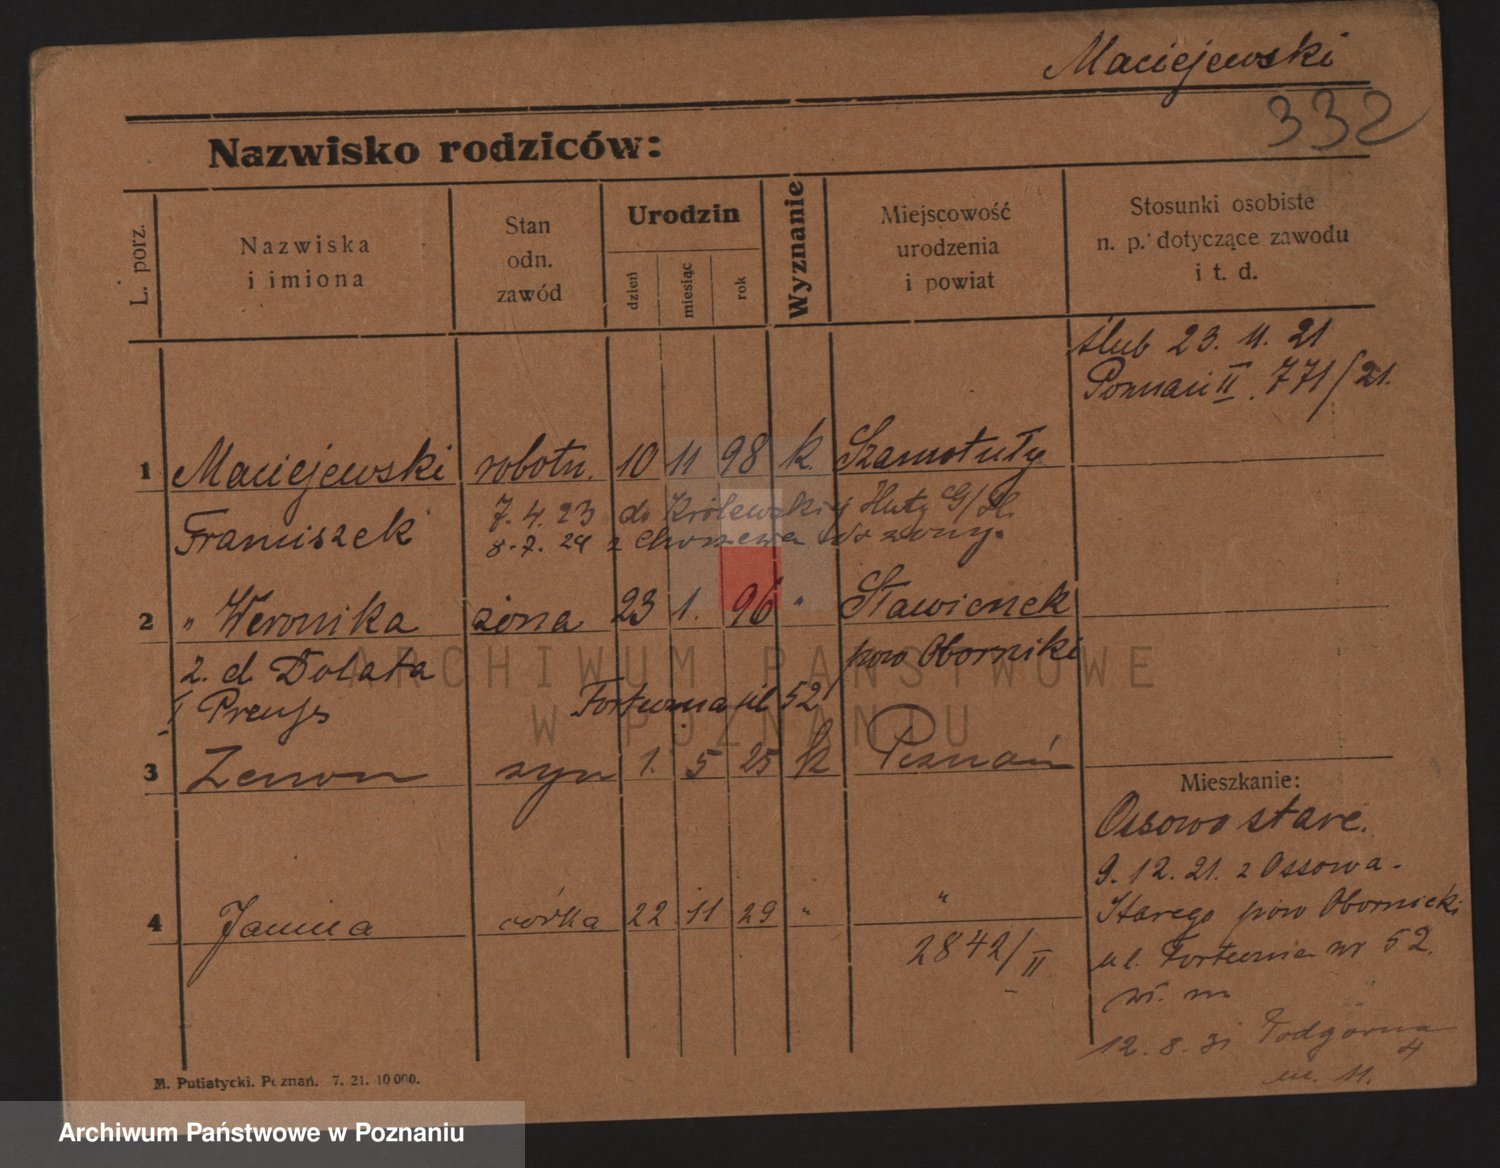 Maciejewski
332
Nazwisko rodziców:
L. porz.
Nazwiska
i imiona
Stan
odn.
zawód
Urodzin
dzień
miesiąc
rok
Wyznanie
Miejscowość
urodzenia
i powiat
Stosunki osobiste
n. p. dotyczące zawodu
i t. d.
ślub 23. 11. 21
Poznań II. 771/21.
1 Maciejewski robotn. 10 11 98 k. Szamotuły
Franciszek
7. 4. 23 do Królewskiej Huty G/Śl.
8. 7. 24 z do żony.
2 " Weronika żona 23 1. 96 " Sławienek
pow Oborniki
2. d Dolata
I Preuss
Fortuzna ul 52
3 Zenon syn 1. 5 25 k Poznań
Mieszkanie:
Ossowo stare.
9. 12. 21. z Ossowa-
Starego pow Obornicki
ul. nr 52.
4 Janina córka 22 11 29 " "
2842/II
12. 8. 31 Podgórna 4
m. 11.
M. Putiatycki. Poznań. 7. 21. 10 000.
ARCHIWUM PAŃSTWOWE
W POZNANIU
Archiwum Państwowe w Poznaniu